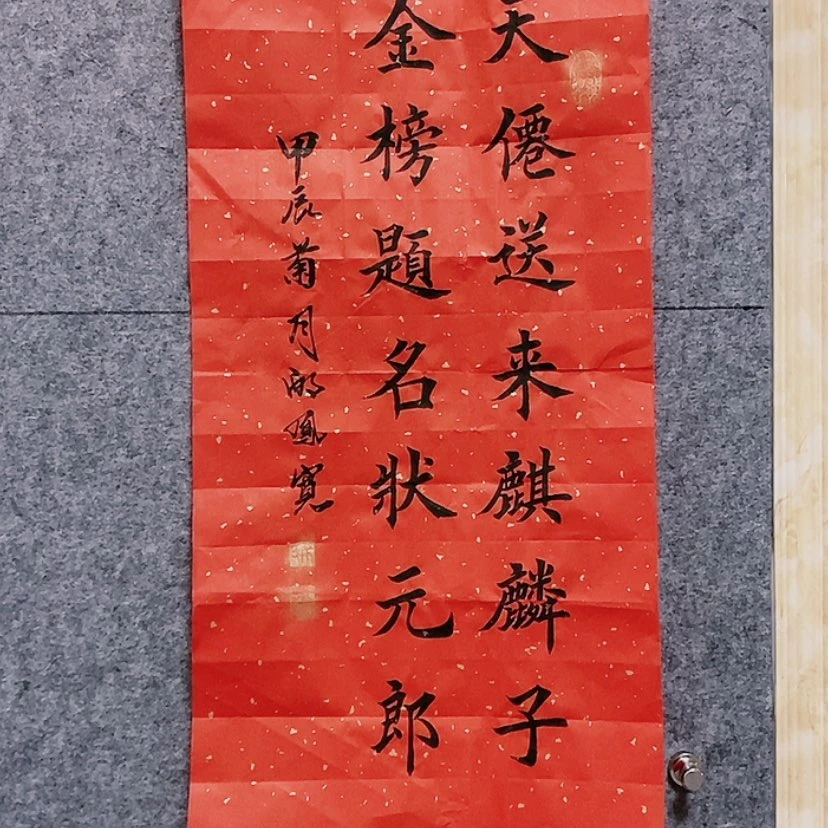 天僊送来麒麟子
金榜題名狀元郎
甲辰菊月